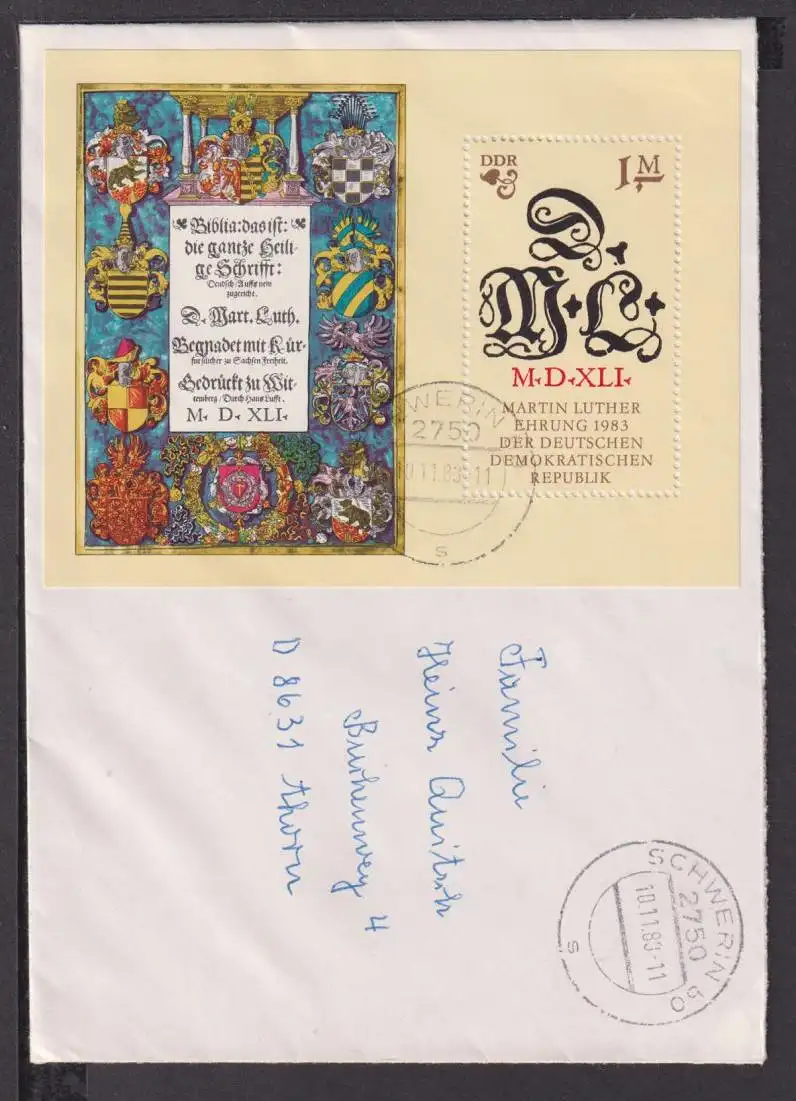 Biblia: das ist:
die gantze Heili-
ge Schrifft:
Deudsch / Auffs new
zugericht.
D. Mart. Luth.
Begnadet mit Kür-
fürstlicher zu Sachsen Freiheit.
Gedrückt zu Wit-
temberg / Durch Hans Lufft.
M D XLI
DDR
1 M
D
M L
M·D·XLI·
MARTIN LUTHER
EHRUNG 1983
DER DEUTSCHEN
DEMOKRATISCHEN
REPUBLIK
SCHWERIN
2750
10.11.83-11
s
Familie
Heinz Quitsch
Birkenweg 4
D 8631 Ahorn
SCHWERIN 50
2750
10.11.83-11
s